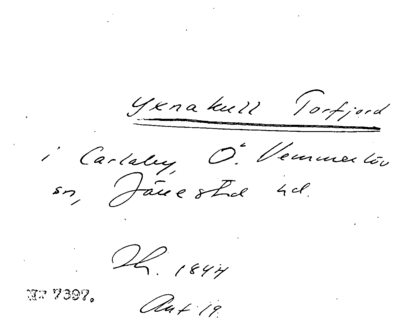 Yxnakull Torfjord
i Carlaby, Ö. Vemmerlöv
sn, Järrestad hd.
Th. 1844
Akt 19.
Nr 7397.